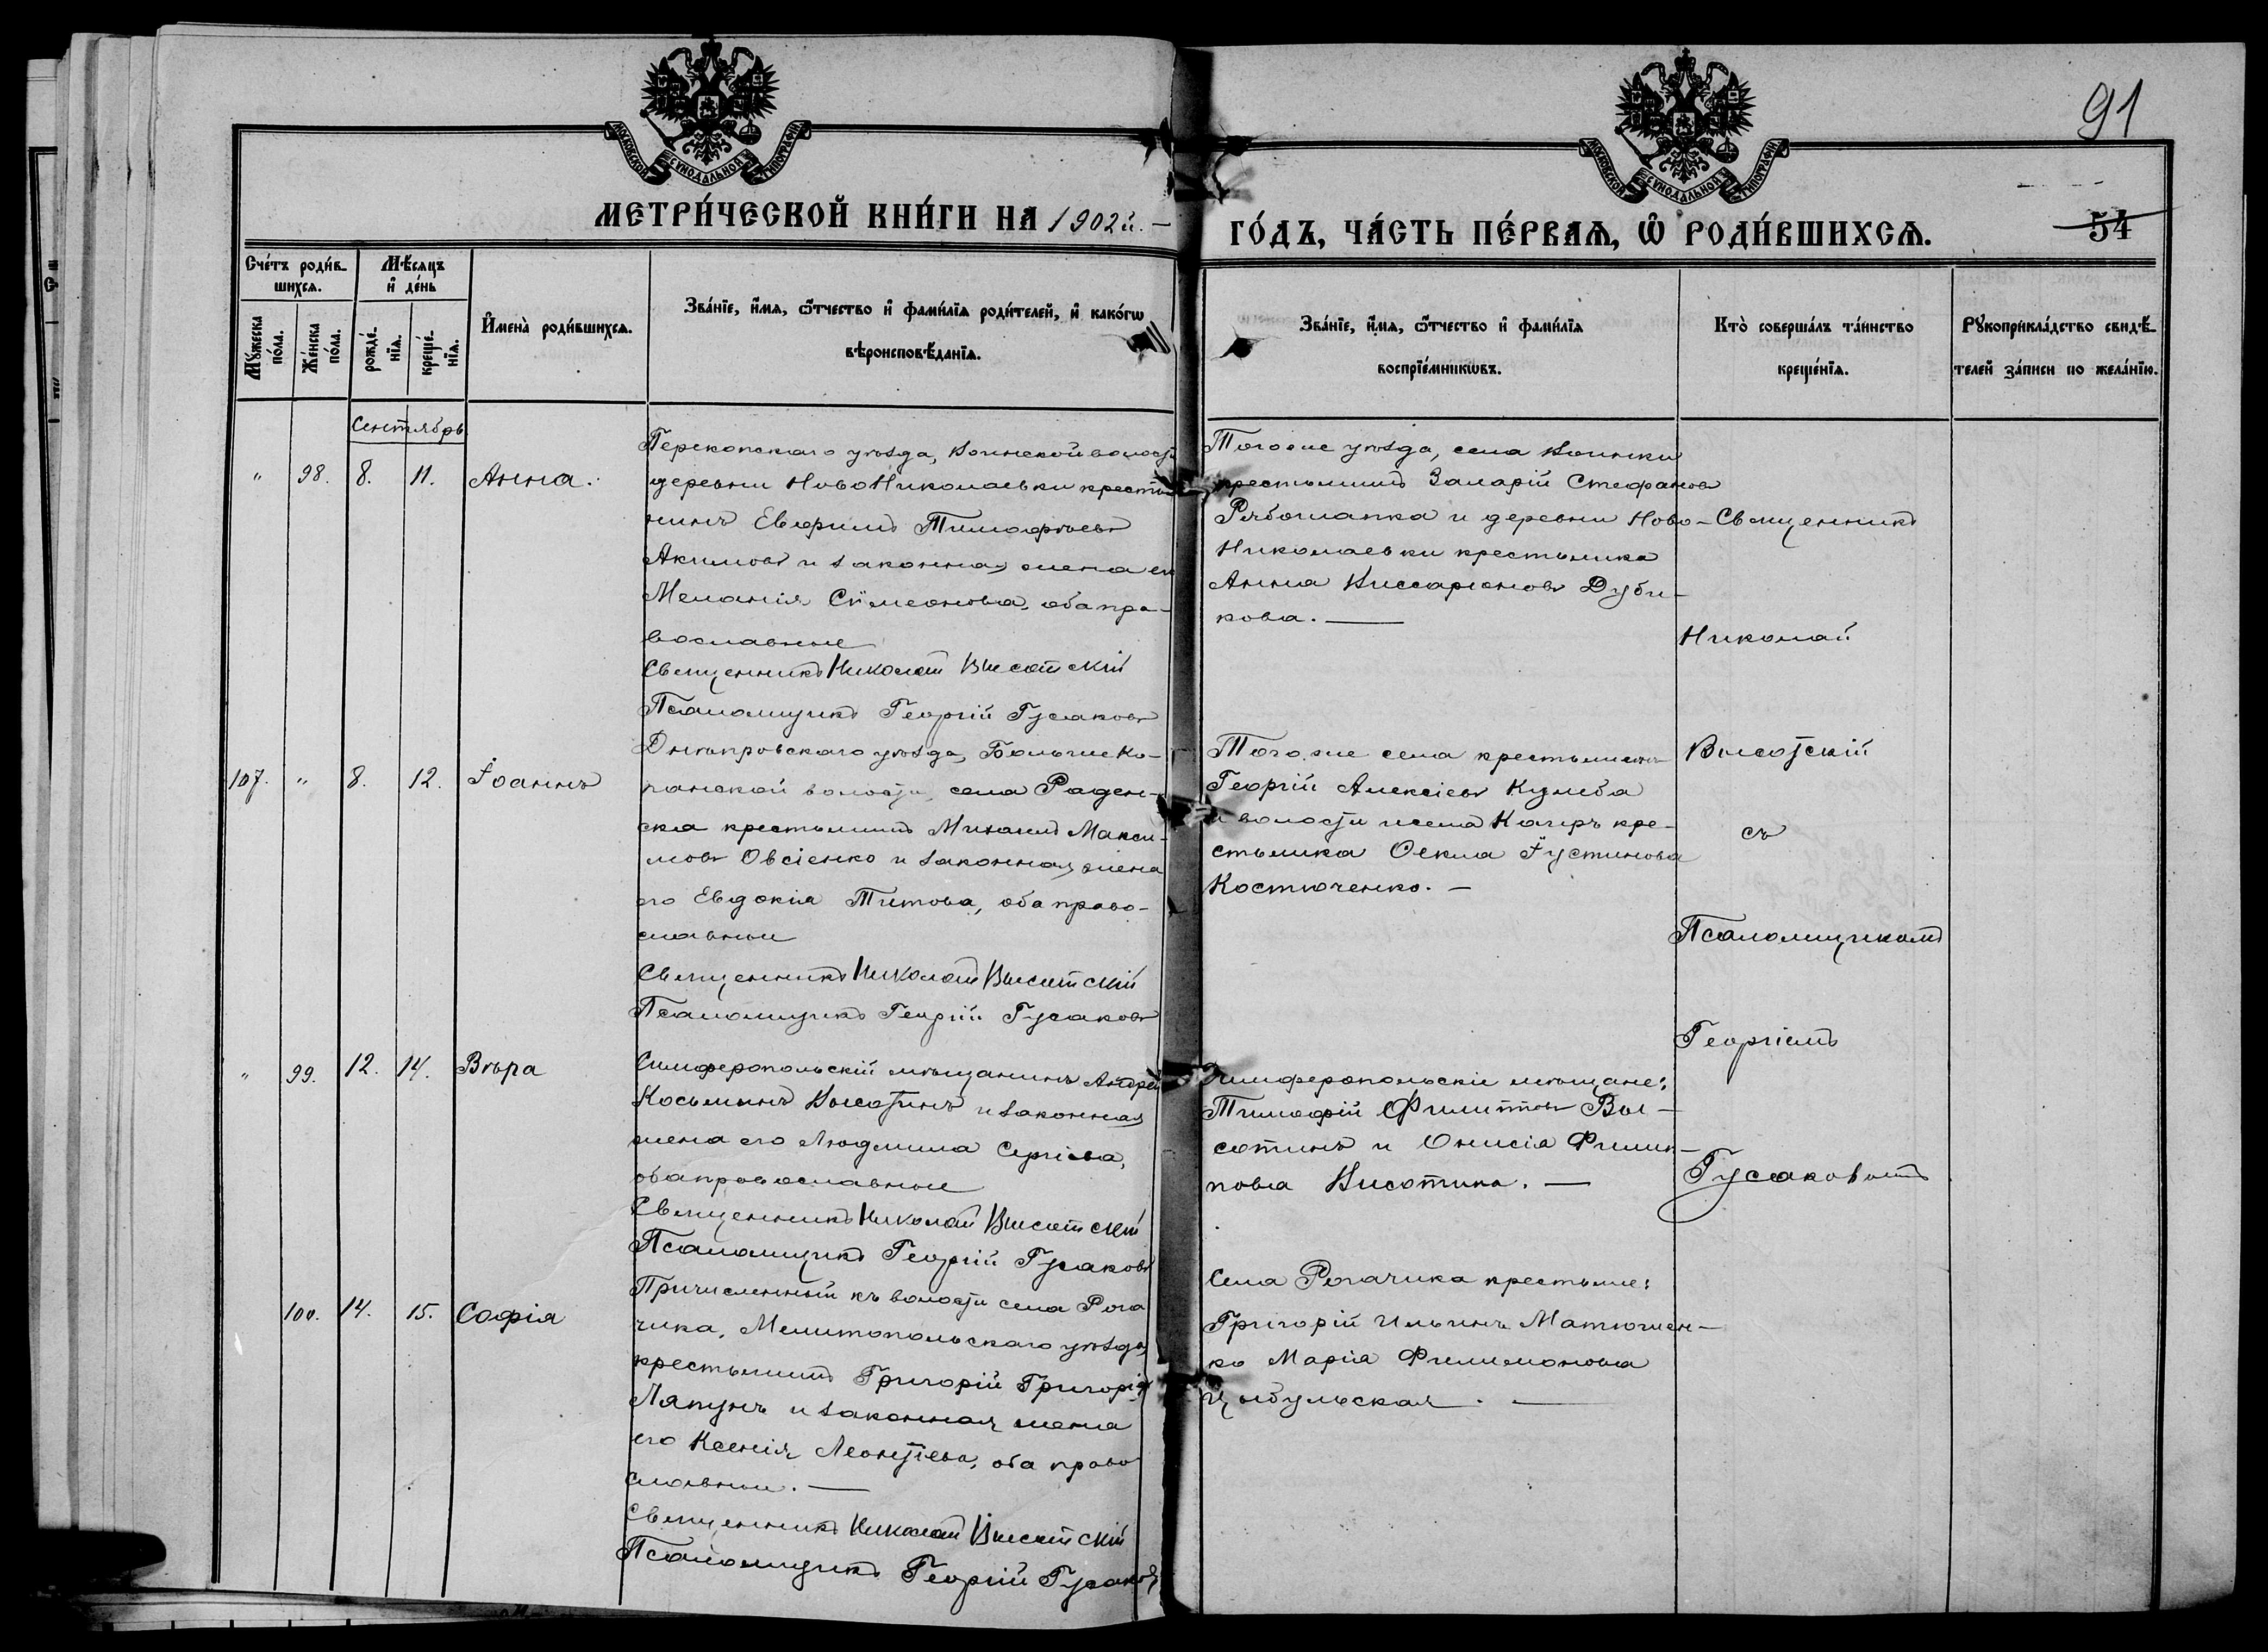 91
МОСКОВСКОЙ СѴНОДАЛЬНОЙ ТИПОГРАФІИ
МОСКОВСКОЙ СѴНОДАЛЬНОЙ ТИПОГРАФІИ
МЕТРИ́ЧЕСКОЙ КНИ́ГИ НА 1902й. –
ГО́ДЪ, ЧА́СТЬ ПЕ́РВАѦ, Ѡ҆ РОДИ́ВШИХСѦ.
54
Счéтъ роди́в-
шихсѧ.
Мꙋ́жеска
по́ла.
Же́нска
по́ла.
Мѣ́сѧцъ
и҆ де́нь
рожде́-
нїѧ.
креще́-
нїѧ.
И҆мена̀ роди́вшихсѧ.
Зва́нїе, и҆́мѧ, ѻ҆́тчество и҆ фами́лїѧ роди́телей, и҆ како́гѡ
вѣроисповѣ́данїѧ.
Зва́нїе, и҆́мѧ, ѻ҆́тчество и҆ фами́лїѧ
воспрїе́мникѡвъ.
Кто̀ соверша́лъ та́инство
креще́нїѧ.
Рꙋкоприкла́дство свидѣ́-
телей за́писи по жела́нїю.
Сентябрь
" 98. 8. 11. Анна.
Перекопскаго уѣзда, Воинской волости
деревни НовоНиколаевки крестья
нинъ Евфимъ Тимофѣевъ
Акимовъ и законная жена его
Меланія Сѵмеонова, оба пра-
вославные
Священникъ Николай Высотскій
Псаломщикъ Георгій Гусаковъ
Тогоже уѣзда, села Воинки
крестьянинъ Захарій Стефановъ
Рябошапка и деревни Ново-
Николаевки крестьянка
Анна Виссаріонова Дуби-
кова. —
Священникъ
Николай
Высотскій
съ
Псаломщикомъ
Георгіемъ
Гусаковымъ
107. " 8. 12. Іоаннъ
Днѣпровскаго уѣзда, БольшеКо-
панской волости, села Раден-
ска крестьянинъ Михаилъ Макси-
мовъ Овсіенко и законная жена
его Евдокія Титова, оба право-
славные
Священникъ Николай Высотскій
Псаломщикъ Георгій Гусаковъ
Того же села крестьянинъ
Георгій Алексіевъ Кулеба
и волости и села Каирь кре-
стьянка Ѳекла Іустинова
Костюченко. –
" 99. 12. 14. Вѣра
Симферопольскій мѣщанинъ Андрей
Косьминъ Высотинъ и законная
жена его Людмила Сергіева,
оба православные
Священникъ Николай Высотскій
Псаломщикъ Георгій Гусаковъ
Симферопольскіе мѣщане:
Тимофій Филипповъ Вы-
сотинъ и Онисія Филип-
пова Высотина. —
100. 14. 15. Софія
Причисленный къ волости села Рога
чика, Мелитопольскаго уѣзда,
крестьянинъ Григорій Григорьевъ
Ляпунъ и законная жена
его Ксенія Леонтіева, оба право
славные. —
Священникъ Николай Высотскій
Псаломщикъ Георгій Гусаковъ
Села Рогачика крестьяне:
Григорій Ильинъ Матюшен-
ко Марія Филимонова
Цыбульская. —